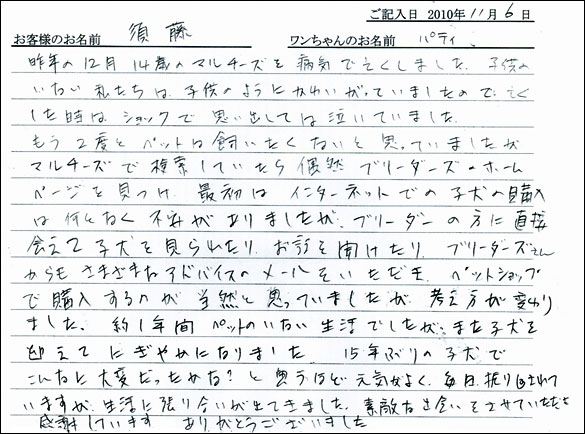 ご記入日 2010年 11月 6日
お客様のお名前 須藤 ワンちゃんのお名前 パティ
昨年の12月 14歳のマルチーズを病気で亡くしました。子供の
いない私たちは、子供のようにかわいがっていましたので、亡く
した時はショックで思い出しては泣いていました。
もう2度とペットは飼いたくないと思っていましたが
マルチーズで検索していたら偶然ブリーダーズのホーム
ページを見つけ、最初はインターネットでの子犬の購入
は何となく不安がありましたが、ブリーダーの方に直接
会えて子犬を見られたり、お話を聞けたり、ブリーダーズさん
からもさまざまなアドバイスのメールをいただき、ペットショップ
で購入するのが当然と思っていましたが、考え方が変わり
ました。約1年間ペットのいない生活でしたが、また子犬を
迎えてにぎやかになりました。15年ぶりの子犬で
こんなに大変だったかな?と思うほど元気がよく、毎日、振り回されて
いますが、生活に張り合いが出てきました。素敵な出会いをさせていただき
感謝しています ありがとうございました